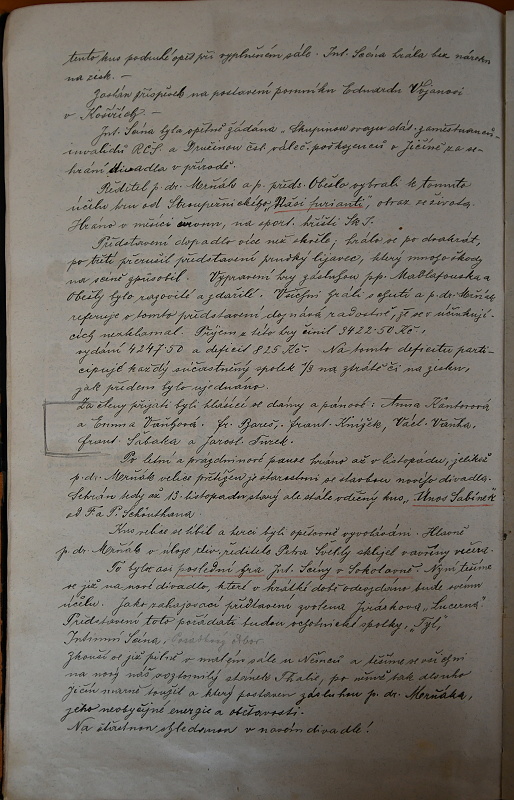 tento kus podruhé opět při vyplněném sále. Int. Scéna hrála bez nároku
na zisk. —
Zaslán příspěvek na postavení pomníku Eduardu Vojanovi
v Košířích. —
Int. Scéna byla opětně žádána, Skupinou svazu stát. zaměstnanců-
invalidů RČS. a Družinou čsl. váleč. poškozenců v Jičíně za se-
hrání divadla v přírodě.
Ředitel p. dr. Merňák a p. předs. Obešlo vybrali k tomuto
účelu hru od Stroupežnického „Naši furianti", obraz ze života.
Hráno v měsíci červnu, na sport. hřišti Sk. J.
Představení dopadlo více než skvěle, hrálo se po dvakrát,
po třetí přerušil představení prudký lijavec, který mnoho škody
na scéně způsobil. Vypravení hry zásluhou pp.
Obešly bylo rázovité a zdařilé. Všichni hráli s chutí a p. dr. Merňák
referuje o tomto představení dojmově radostně, že se v účinkují-
cích nezklamal. Příjem z této hry činil 3422·50 Kč,
vydání 4247·50 a deficit 825 Kč. Na tomto deficitu parti-
cipuje každý súčastněný spolek 1/3 na ztrátě či na zisku,
jak předem bylo ujednáno.
Za členy přijati byli hlásící se dámy a pánové: Anna Kantorová
a Emma Vaňhova. Fr. Bareš, Frant. Knížek, Václ. Vaňha,
Frant. Šabaka a Jarosl. Turek.
Po letní a prázdninové pause hráno až v listopadu, jelikož
p. dr. Merňák velice přetížen je starostmi se stavbou nového divadla.
Sehrán tedy až 13. listopadu starý ale stále vděčný kus, „Únos Sabinek"
od F. a P. Schönthana.
Kus velice se líbil a herci byli opětovně vyvoláváni. Hlavně
p. dr. Merňák v úloze div. ředitele Petra Světlý sklízel vavříny večera.
To byla asi poslední hra Int. Scény v Sokolovně. Nyní těšíme
se již na nové divadlo, které v krátké době odevzdáno bude svému
účelu. Jako zahajovací představení zvolena Jiráskova „Lucerna".
Představení toto pořádati budou ochotnické spolky, „Tyl",
Intimní Scéna,
Zkouší se již pilně v malém sále u Němců a těšíme se všichni
na nový náš vzototmilý stánek Thalie, po němž tak dlouho
Jičín marně toužil a který postaven zásluhou p. dr. Merňáka,
jeho neobyčejné energie a obětavosti.
Na šťastnou shledanou v novém divadle!